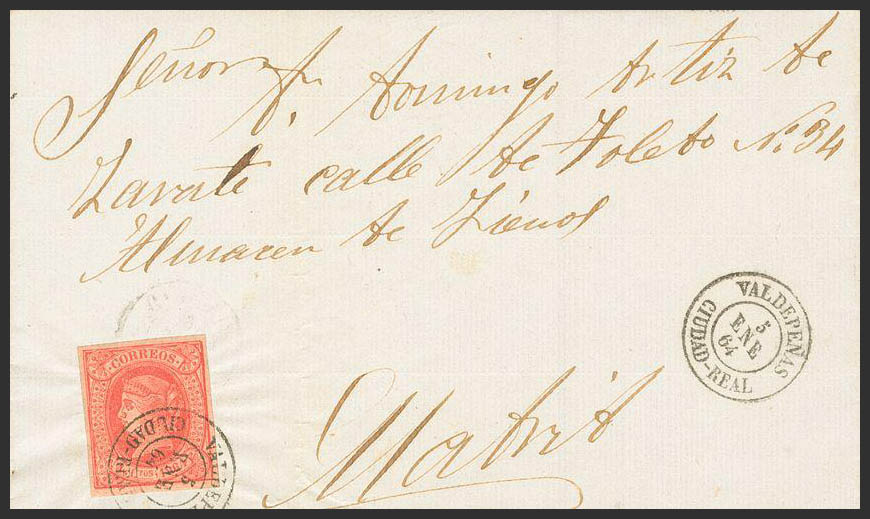 Señor Dn. Domingo Ortiz de
Zarate calle de Toledo No. 34
Almacen de
Madrid
VALDEPEÑAS
5
ENE
64
CIUDAD-REAL
CORREOS
VALDEPE
5 E
CIUDAD-